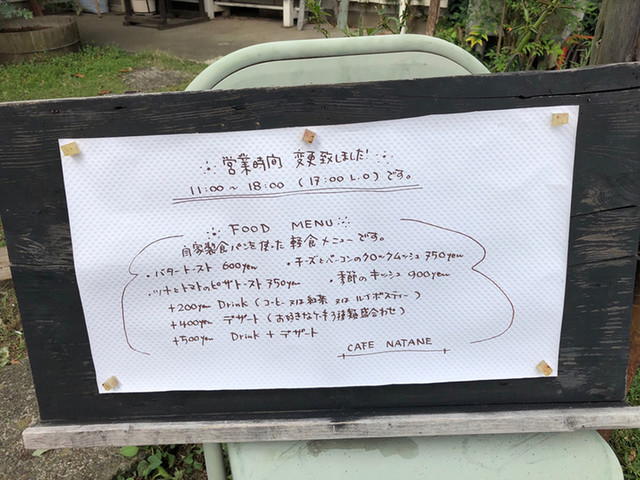 営業時間 変更致しました!
11:00～18:00 (17:00 L.O) です。
FOOD MENU
自家製食パンを使った軽食メニューです。
・バタートースト 600yen ・チーズとベーコンのクロックムッシュ 750yen
・ツナとトマトのピザトースト 750yen ・季節のキッシュ 900yen
+200yen Drink (コーヒー 又は 紅茶 又は ルイボスティー)
+400yen デザート (お好きなケーキ3種類盛合わせ)
+500yen Drink + デザート
CAFE NATANE